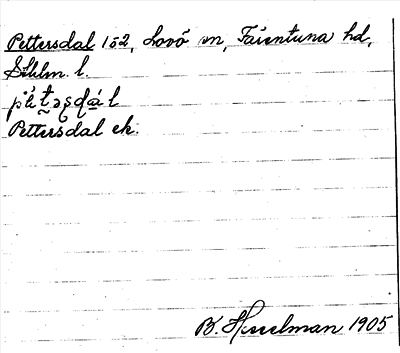 Pettersdal 1ö2, Lovö sn, Färentuna hd,
Sthlm. l.
Pettersdal ek.
B. Hesselman 1905